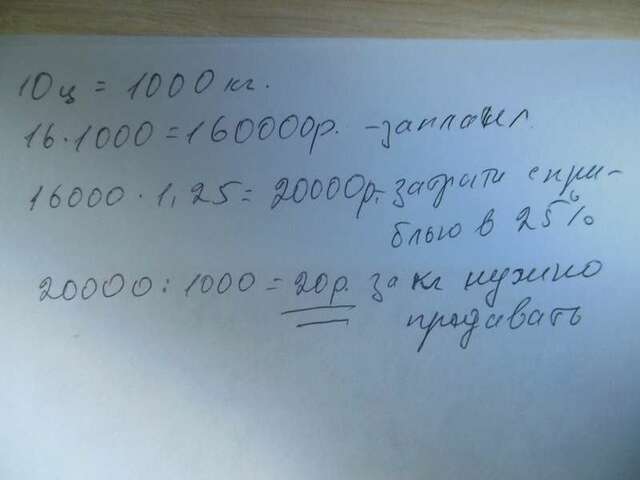 10ц = 1000 кг.
16·1000 = 160000р. - заплатил
16000 · 1,25 = 20000р- затрати с при-
былью в 25%
20000 : 1000 = 20р. за кг нужно
продавать